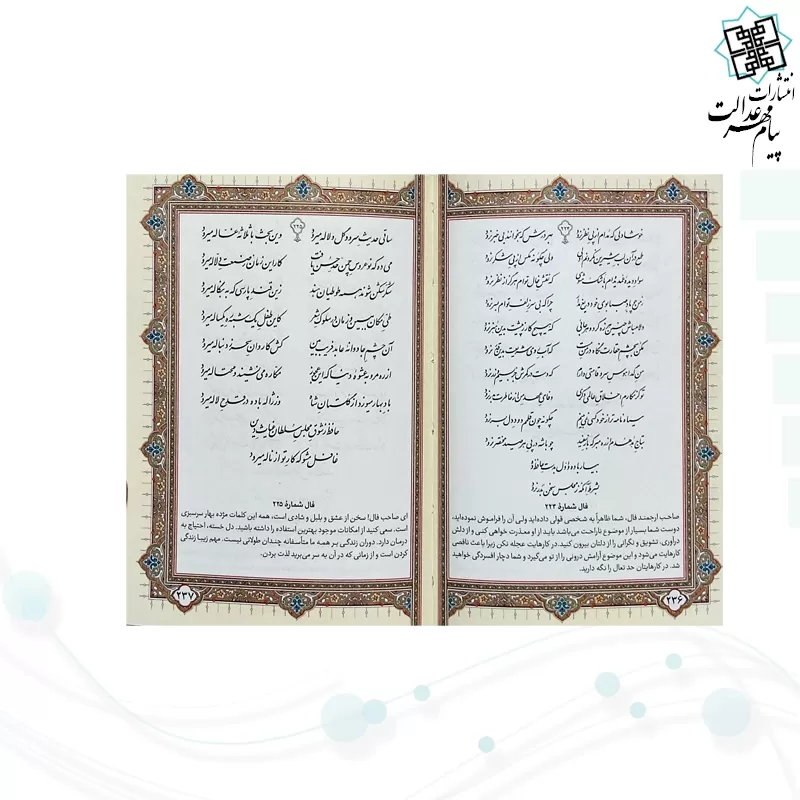 انتشارات
پیام مهر عدالت
۲۲۴
خوشا دلی که مدام از پی نظر نرود به هر درش که بخوانند بی خبر نرود
طمع در آن لب شیرین نکردنم اولی ولی چگونه مگس از پی شکر نرود
سواد دیده غمدیده‌ام به اشک مشوی که نقش خال توام هرگز از نظر نرود
ز من چو باد صبا بوی خود دریغ مدار چرا که بی سر زلف توام به سر نرود
دلا مباش چنین هرزه گرد و هرجایی که هیچ کار ز پیشت بدین هنر نرود
مکن به چشم حقارت نگاه در من مست که آبروی شریعت بدین قدر نرود
من گدا هوس سرو قامتی دارم که دست در کمرش جز به سیم و زر نرود
تو کز مکارم اخلاق عالمی دگری وفای عهد من از خاطرت به در نرود
سیاه نامه‌تر از خود کسی نمی‌بینم چگونه چون قلمم دود دل به سر نرود
به تاج هدهدم از ره مبر که باز سفید چو باشه در پی هر صید مختصر نرود
بیار باده و اول به دست حافظ ده
به شرط آنکه ز مجلس سخن به در نرود
فال شمارهٔ ۲۲۴
صاحب ارجمند فال، شما ظاهراً به شخصی قولی داده‌اید ولی آن را فراموش نموده‌اید،
دوست شما بسیار از موضوع ناراحت می‌باشد باید از او معذرت خواهی کنی و از دلش
درآوری. تشویق و نگرانی را از دلتان بیرون کنید. در کارهایت عجله نکن زیرا باعث ناقصی
کارهایت می‌شود و این موضوع آرامش درونی را از تو می‌گیرد و شما دچار افسردگی خواهید
شد. در کارهایتان حد تعال را نگه دارید.
۲۳۶
۲۲۵
ساقی حدیث سرو و گل و لاله میرود وین بحث با ثلاثه غساله میرود
می ده که نوعروس چمن حد حسن یافت کار این زمان ز صنعت دلاله میرود
شکرشکن شوند همه طوطیان هند زین قند پارسی که به بنگاله میرود
طی مکان ببین و زمان در سلوک شعر کاین طفل یک شبه ره یکساله میرود
آن چشم جادوانه عابد فریب بین کش کاروان سحر ز دنباله میرود
از ره مرو به عشوه دنیا که این عجوز مکاره می‌نشیند و محتاله میرود
باد بهار میوزد از گلستان شاه وز ژاله باده در قدح لاله میرود
حافظ ز شوق مجلس سلطان غیاث دین
غافل مشو که کار تو از ناله میرود
فال شمارهٔ ۲۲۵
ای صاحب فال! سخن از عشق و بلبل و شادی است، همه این کلمات مژده بهار سرسبزی
است. سعی کنید از امکانات موجود بهترین استفاده را داشته باشید. دل خسته، احتیاج به
درمان دارد. دوران زندگی بر همه ما متأسفانه چندان طولانی نیست. مهم زیبا زندگی
کردن است و از زمانی که در آن به سر می‌برید لذت بردن.
۲۳۷